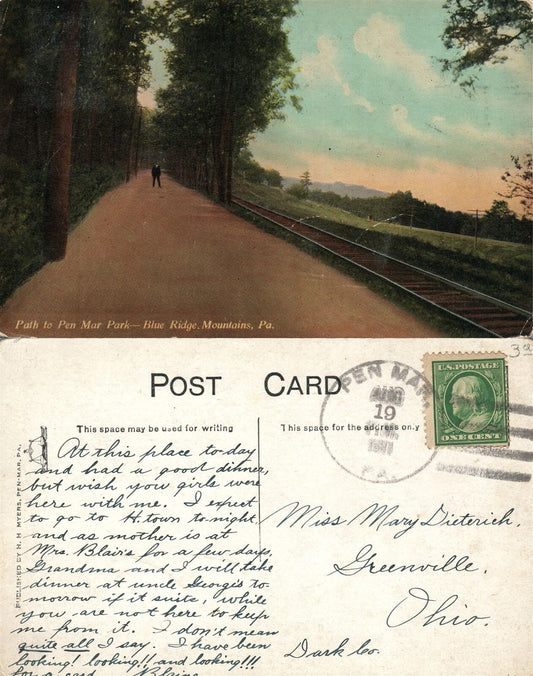 Path to Pen Mar Park—Blue Ridge Mountains, Pa.
POST CARD
This space may be used for writing
This space for the address only
PEN MAR
AUG
19
PA.
U.S.POSTAGE
ONE CENT
PUBLISHED BY H. H. MYERS, PEN-MAR, PA.
At this place to-day
and had a good dinner,
but wish you girls were
here with me. I expect
to go to H.town to-night
and as mother is at
Mrs. Blair's for a few days,
Grandma and I will take
dinner at uncle George's to-
morrow if it suits, while
you are not here to keep
me from it. I don't mean
quite all I say. I have been
looking! looking!! and looking!!!
for a card. Blaine
Miss Mary Dieterich,
Greenville,
Ohio.
Dark Co.